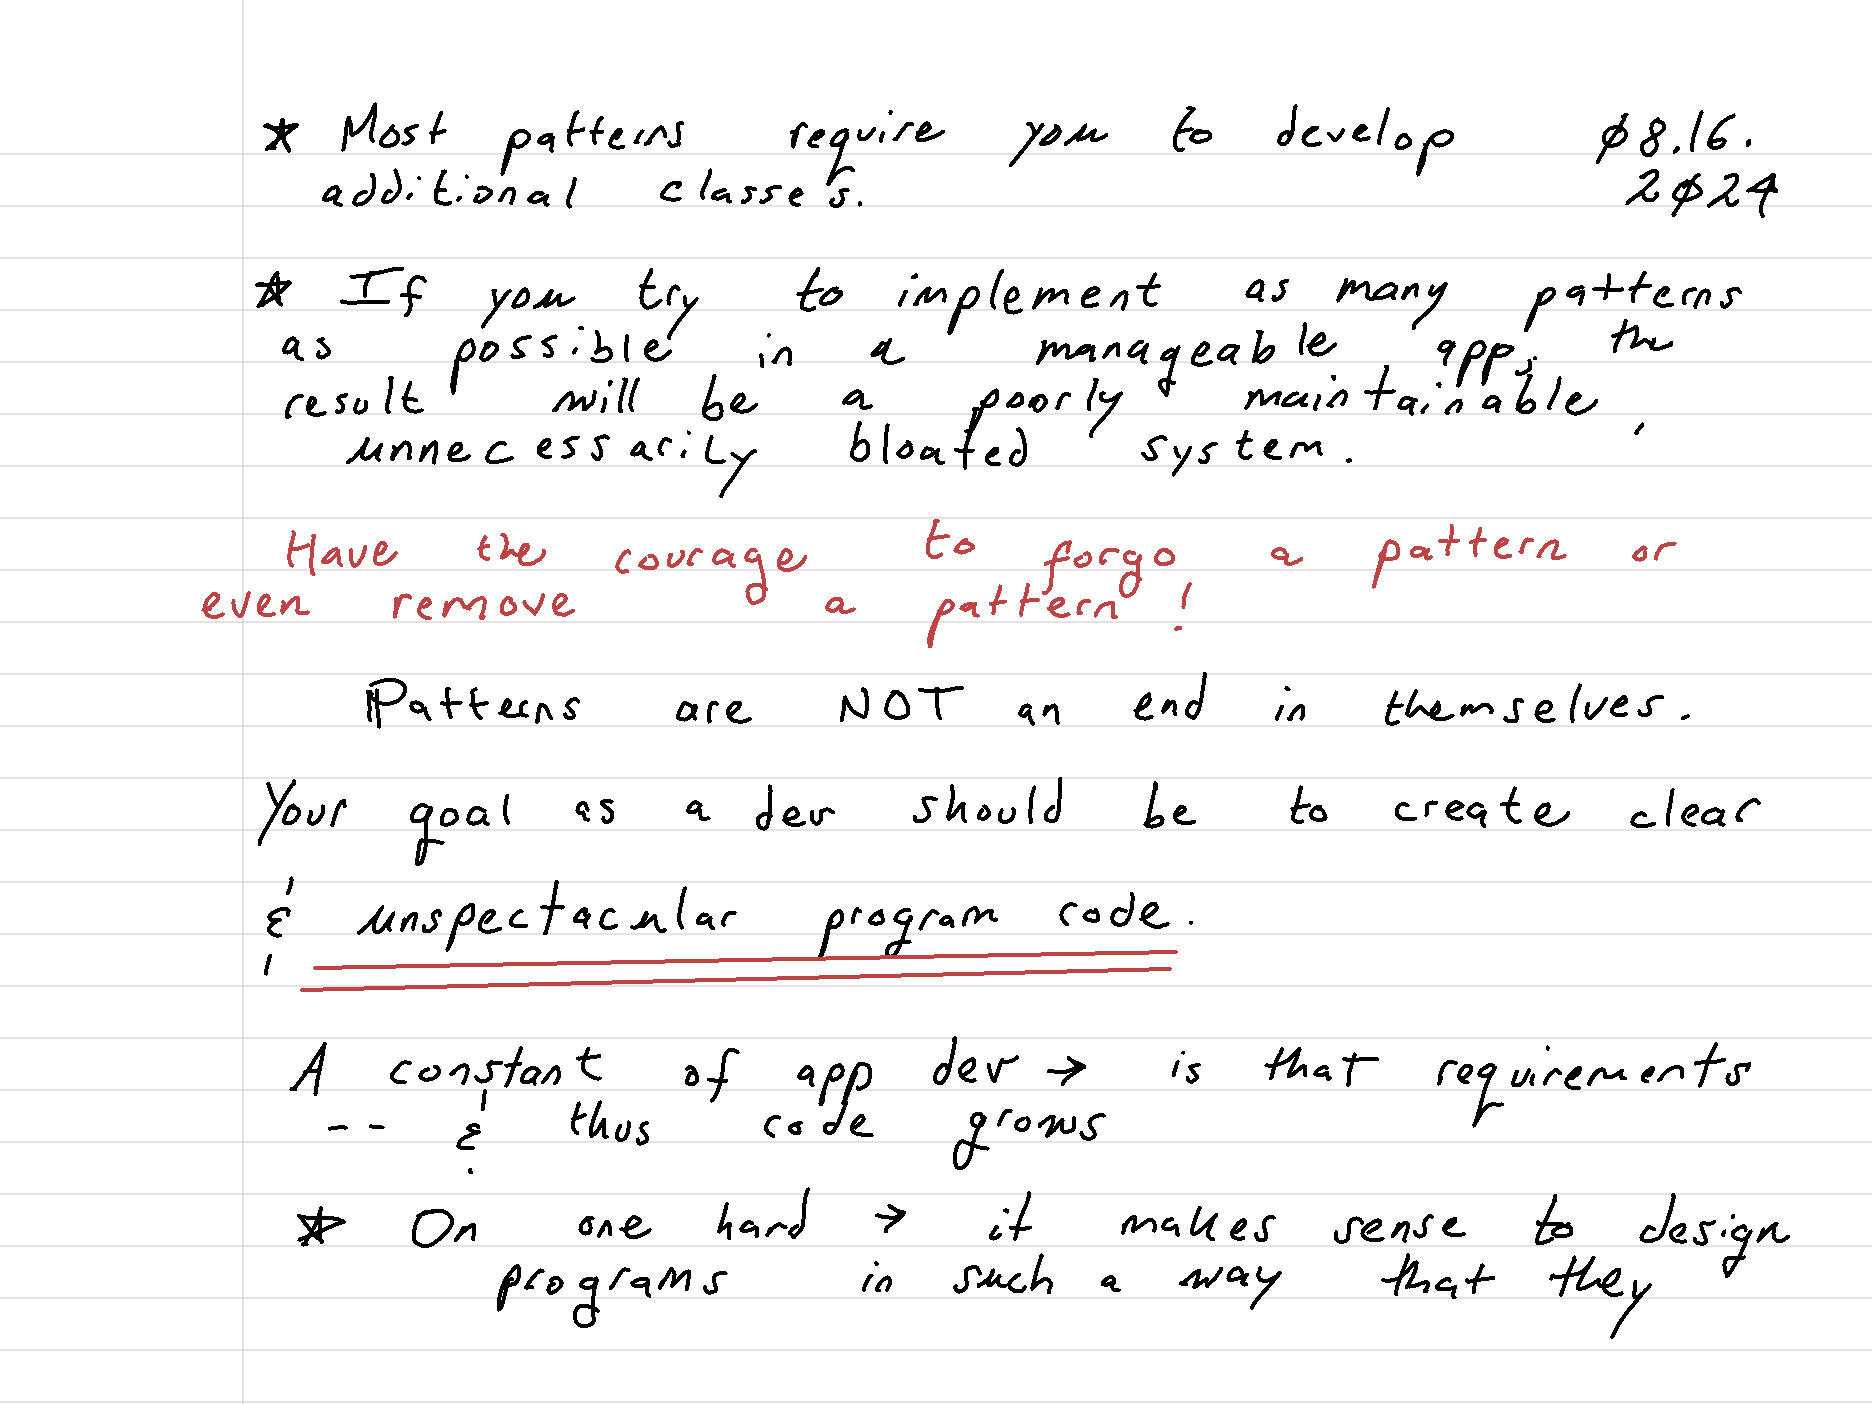 ★ Most patterns require you to develop ø8.16.
additional classes. 2ø24
★ If you try to implement as many patterns
as possible in a manageable app, the
result will be a poorly maintainable,
unnecessarily bloated system.
Have the courage to forgo a pattern or
even remove a pattern!
Patterns are NOT an end in themselves.
Your goal as a dev should be to create clear
& unspectacular program code.
A constant of app dev → is that requirements
-- & thus code grows
★ On one hand → it makes sense to design
programs in such a way that they